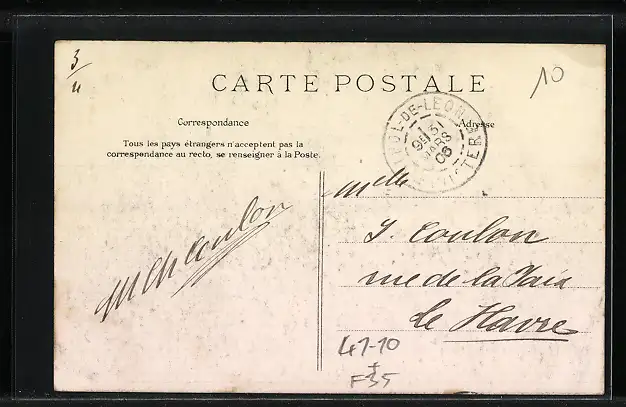 3/4
10
CARTE POSTALE
Correspondance
Adresse
Tous les pays étrangers n'acceptent pas la
correspondance au recto, se renseigner à la Poste.
POL-DE-LEON
31
MARS
06
FINISTERE
Mlle
J. Coulon
rue de la Paix
Le Havre
Coulon
41-10
F35